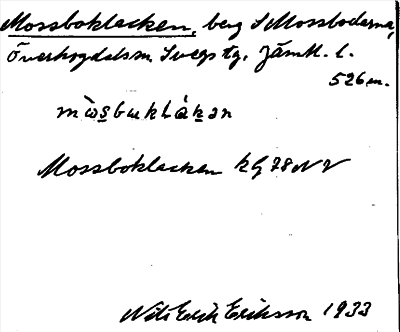 Mossboklacken, berg S Mossbodarna,
Överhogdals sn Svegs tg. Jämtl. l.
526 m.
Mossboklacken kG 78 NV
Nils Erik Eriksson 1933